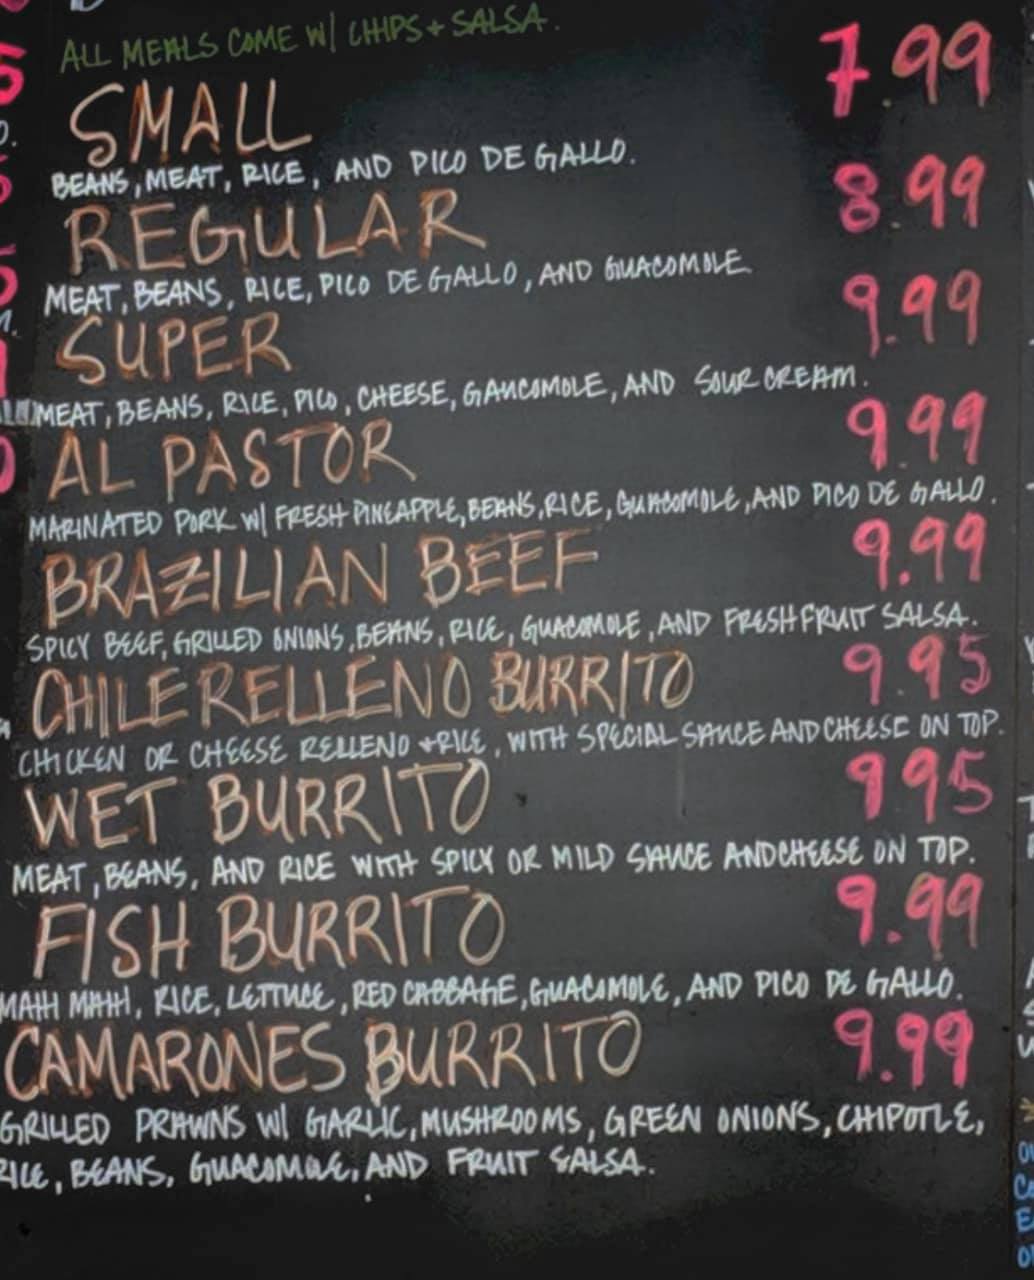 ALL MEALS COME W/ CHIPS + SALSA.
SMALL 7.99
BEANS, MEAT, RICE, AND PICO DE GALLO.
REGULAR 8.99
MEAT, BEANS, RICE, PICO DE GALLO, AND GUACOMOLE
SUPER 9.99
MEAT, BEANS, RICE, PICO, CHEESE, GAUCOMOLE, AND SOUR CREAM.
AL PASTOR 9.99
MARINATED PORK W/ FRESH PINEAPPLE, BEANS, RICE, GUACOMOLE, AND PICO DE GALLO.
BRAZILIAN BEEF 9.99
SPICY BEEF, GRILLED ONIONS, BEANS, RICE, GUACOMOLE, AND FRESH FRUIT SALSA.
CHILE RELLENO BURRITO 9.95
CHICKEN OR CHEESE RELLENO + RICE, WITH SPECIAL SAUCE AND CHEESE ON TOP.
WET BURRITO 995
MEAT, BEANS, AND RICE WITH SPICY OR MILD SAUCE AND CHEESE ON TOP.
FISH BURRITO 9.99
MAHI MAHI, RICE, LETTUCE, RED CABBAGE, GUACAMOLE, AND PICO DE GALLO.
CAMARONES BURRITO 9.99
GRILLED PRAWNS W/ GARLIC, MUSHROOMS, GREEN ONIONS, CHIPOTLE,
RICE, BEANS, GUACOMOLE, AND FRUIT SALSA.